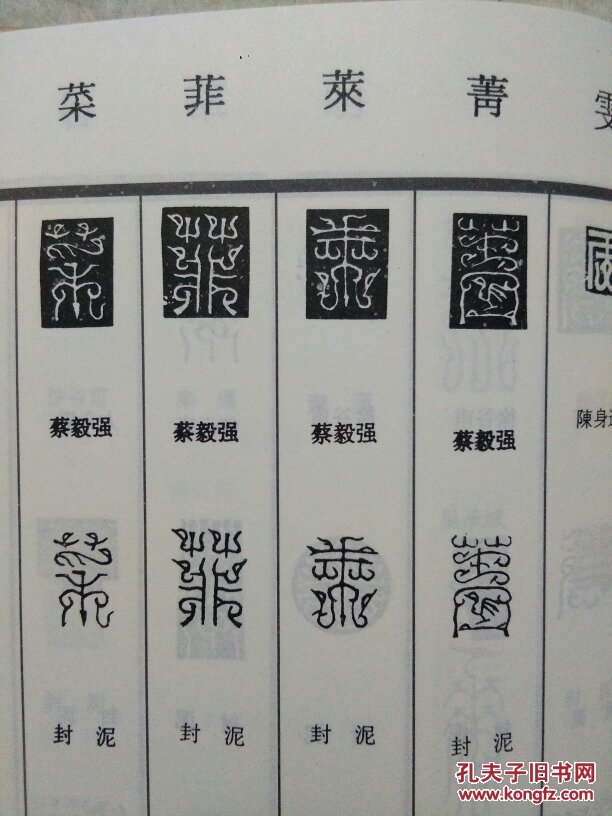 菜 菲 萊 菁
蔡毅强 蔡毅强 蔡毅强 蔡毅强 陳身
封泥 封泥 封泥 封泥
孔夫子旧书网
www.kongfz.com